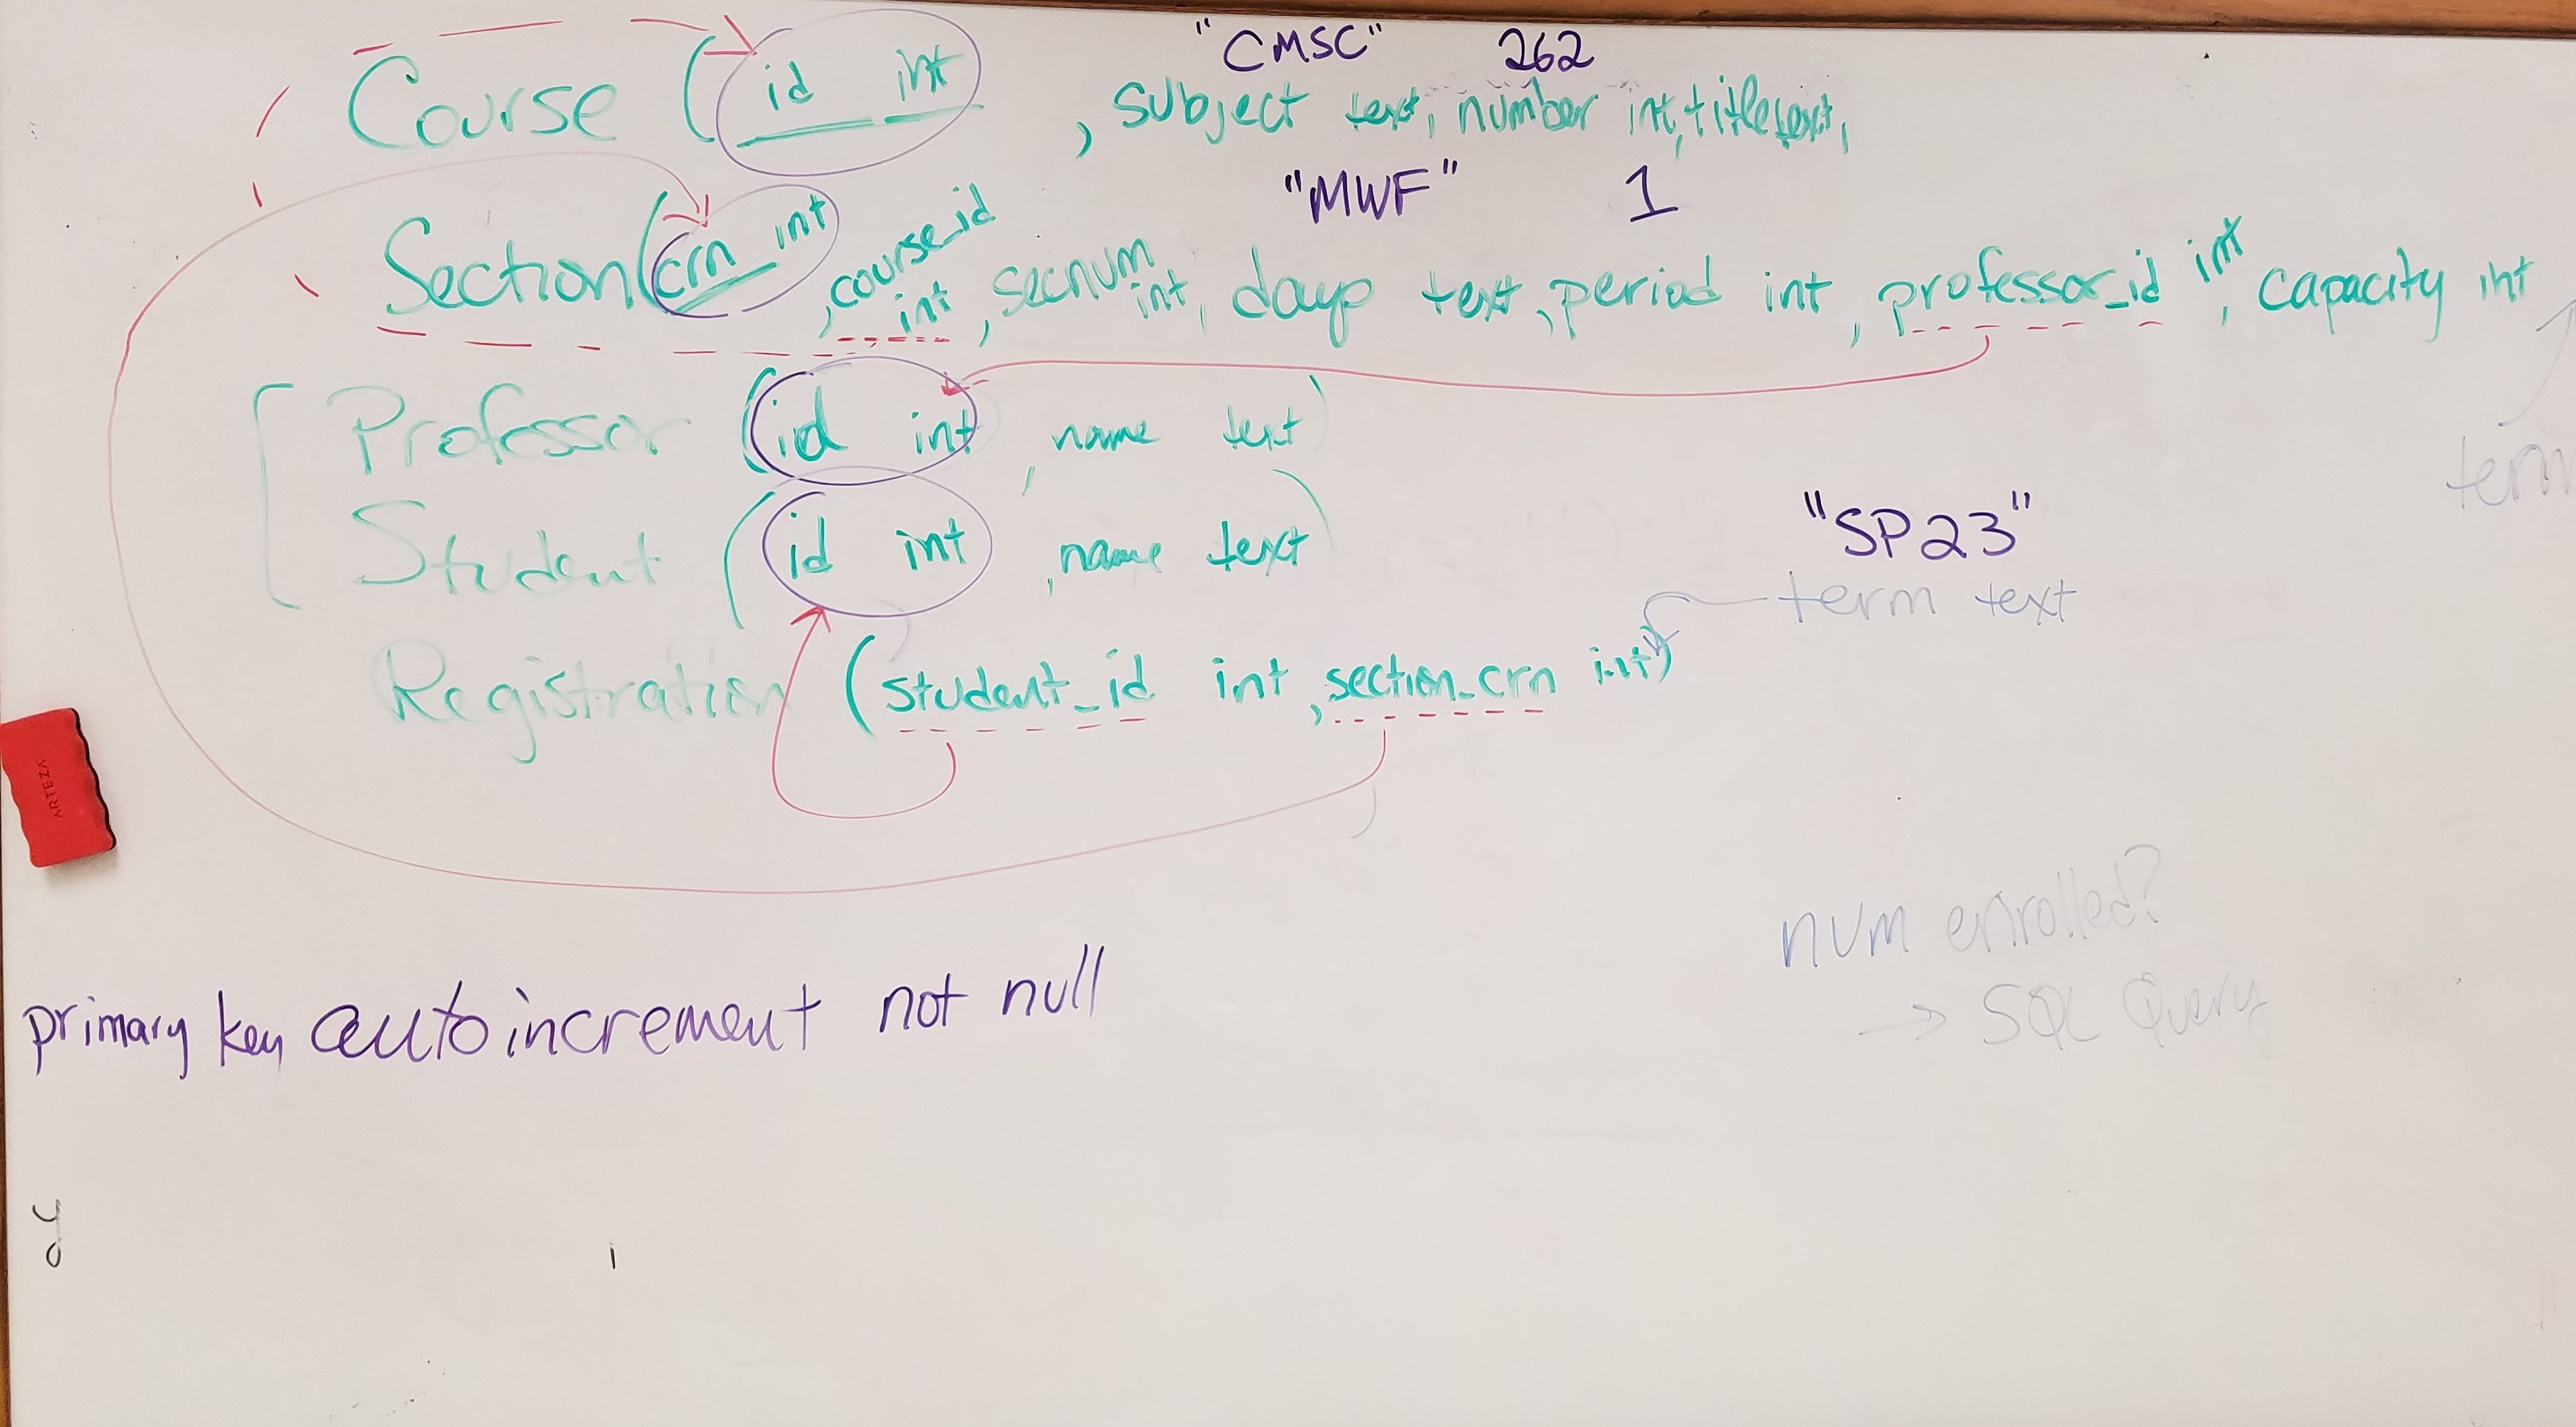 "CMSC" 262
Course (id int, subject text, number int, title text,
"MWF" 1
Section (crn int, course_id int, secnum int, days text, period int, professor_id int, capacity int
term
Professor (id int, name text)
"SP23"
Student (id int, name text)
term text
Registration (student_id int, section_crn int)
ARTEZA
num enrolled?
→ SQL Query
primary key autoincrement not null